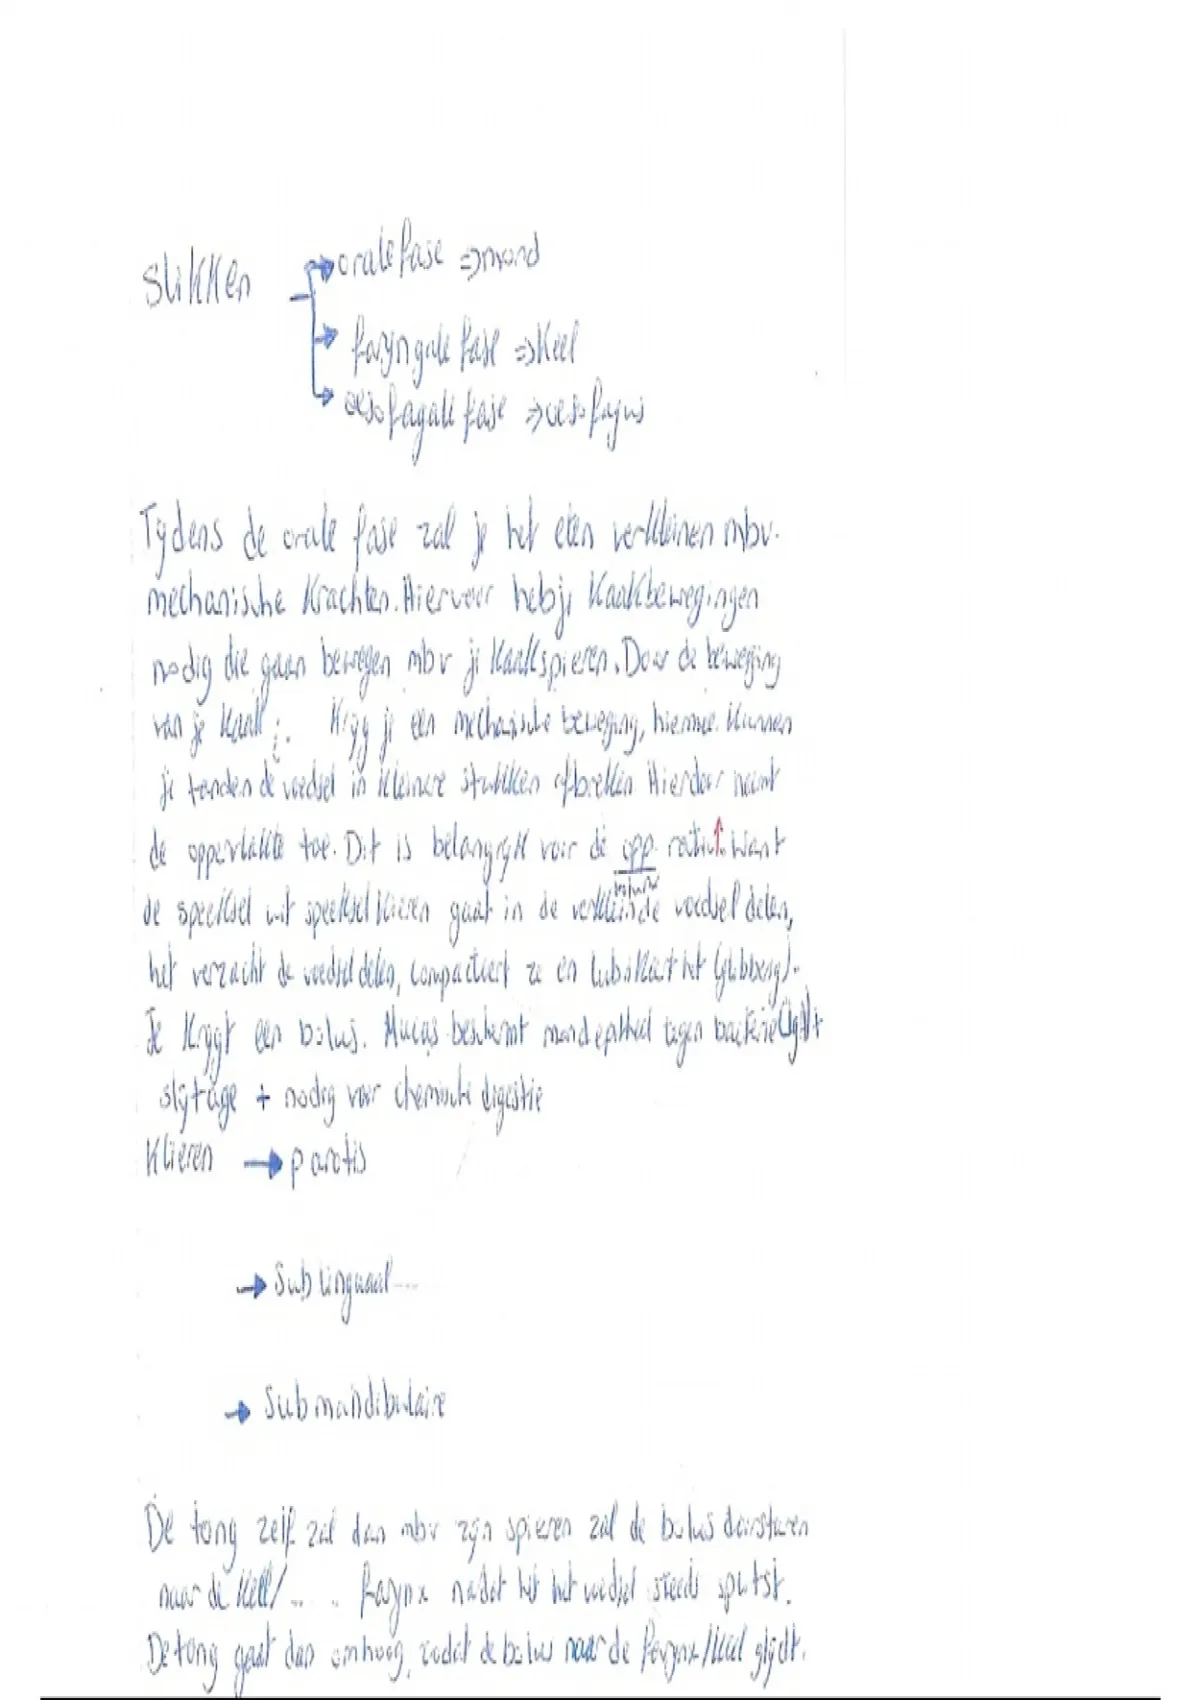 Slikken → orale fase => mond
→ faryngale fase => Keel
→ oesofagale fase => oesofagus
Tijdens de orale fase zal je het eten verkleinen mbv.
mechanische Krachten. Hiervoor heb je Kaakbewegingen
nodig die gaan bewegen mbv je Kaakspieren. Door de beweging
van je Kaak Krijg je een mechanische beweging, hiermee Kunnen
je tanden de voedsel in Kleinere stukken afbreken Hierdoor neemt
de oppervlakte toe. Dit is belangrijk voor de opp. ratio ↑. Want
volume
de speeksel uit speekselklieren gaat in de verkleinde voedsel delen,
het verzacht de voedsel delen, compacteert ze en het (glibberig).
Je Krijgt een bolus. Mucus beschermt mondepitheel tegen bacterie (IgA) +
slijtage + nodig voor chemische digestie
Klieren → parotis
→ Sublinguaal ....
→ Submandibulaire
De tong zelf zal dan mbv zijn spieren zal de bolus doorsturen
naar de Keel/ .. .. farynx nadat het voedsel steeds
De tong gaat dan omhoog, zodat de bolus naar de Farynx/Keel glijdt.